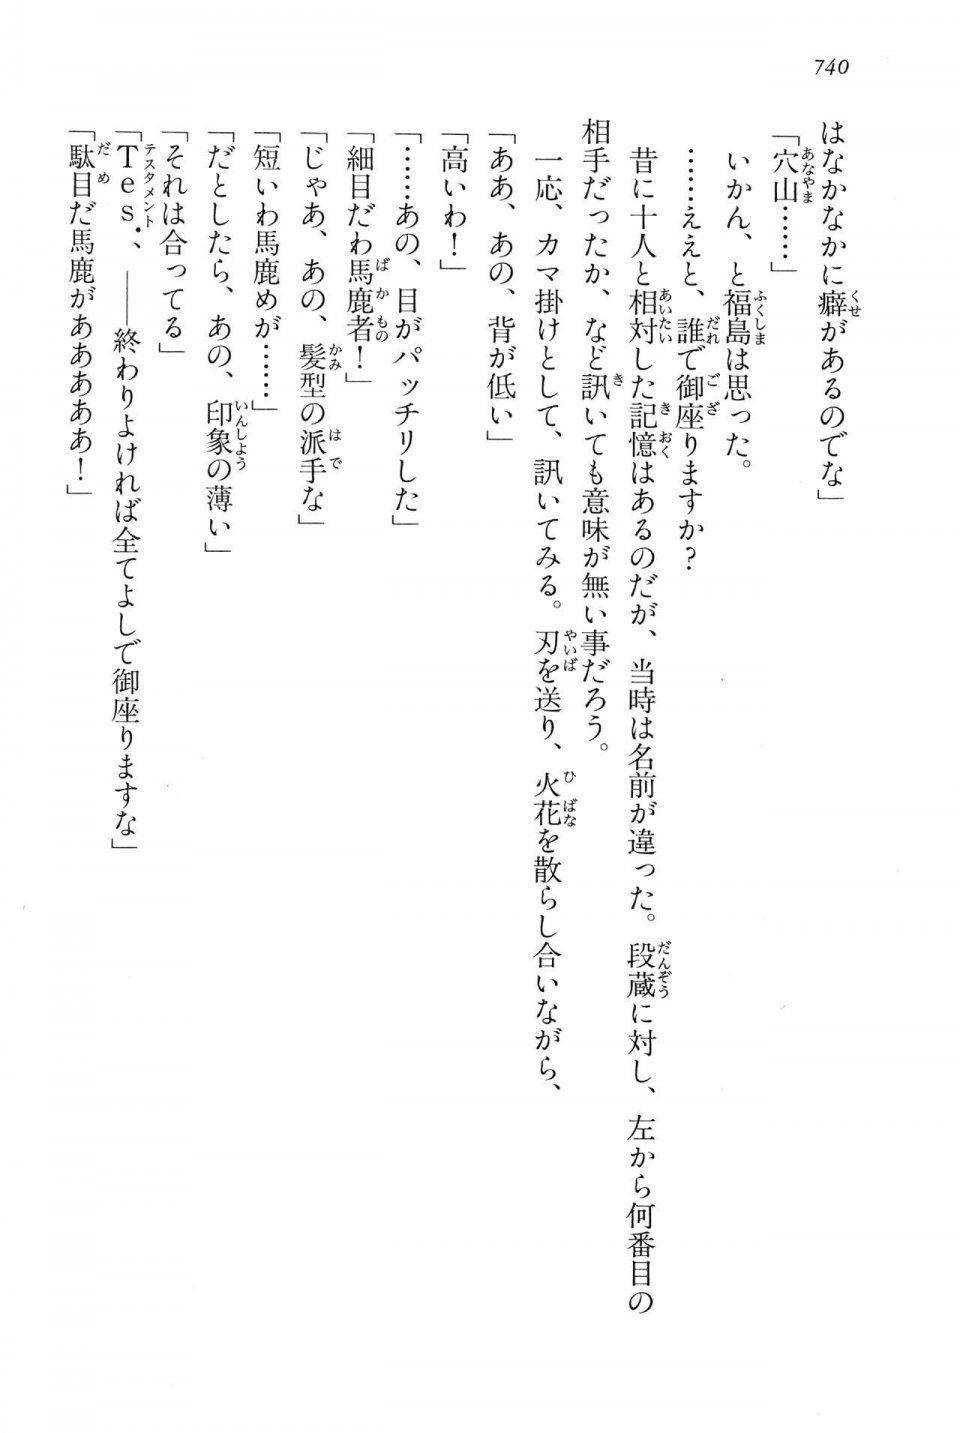 740
はなかなかに癖があるのでな」
「穴山……」
いかん、と福島は思った。
……ええと、誰で御座りますか？
昔に十人と相対した記憶はあるのだが、当時は名前が違った。段蔵に対し、左から何番目の
相手だったか、など訊いても意味が無い事だろう。
一応、カマ掛けとして、訊いてみる。刃を送り、火花を散らし合いながら、
「ああ、あの、背が低い」
「高いわ！」
「……あの、目がパッチリした」
「細目だわ馬鹿者！」
「じゃあ、あの、髪型の派手な」
「短いわ馬鹿めが……」
「だとしたら、あの、印象の薄い」
「それは合ってる」
「Tes.、――終わりよければ全てよしで御座りますな」
「駄目だ馬鹿があああああ！」